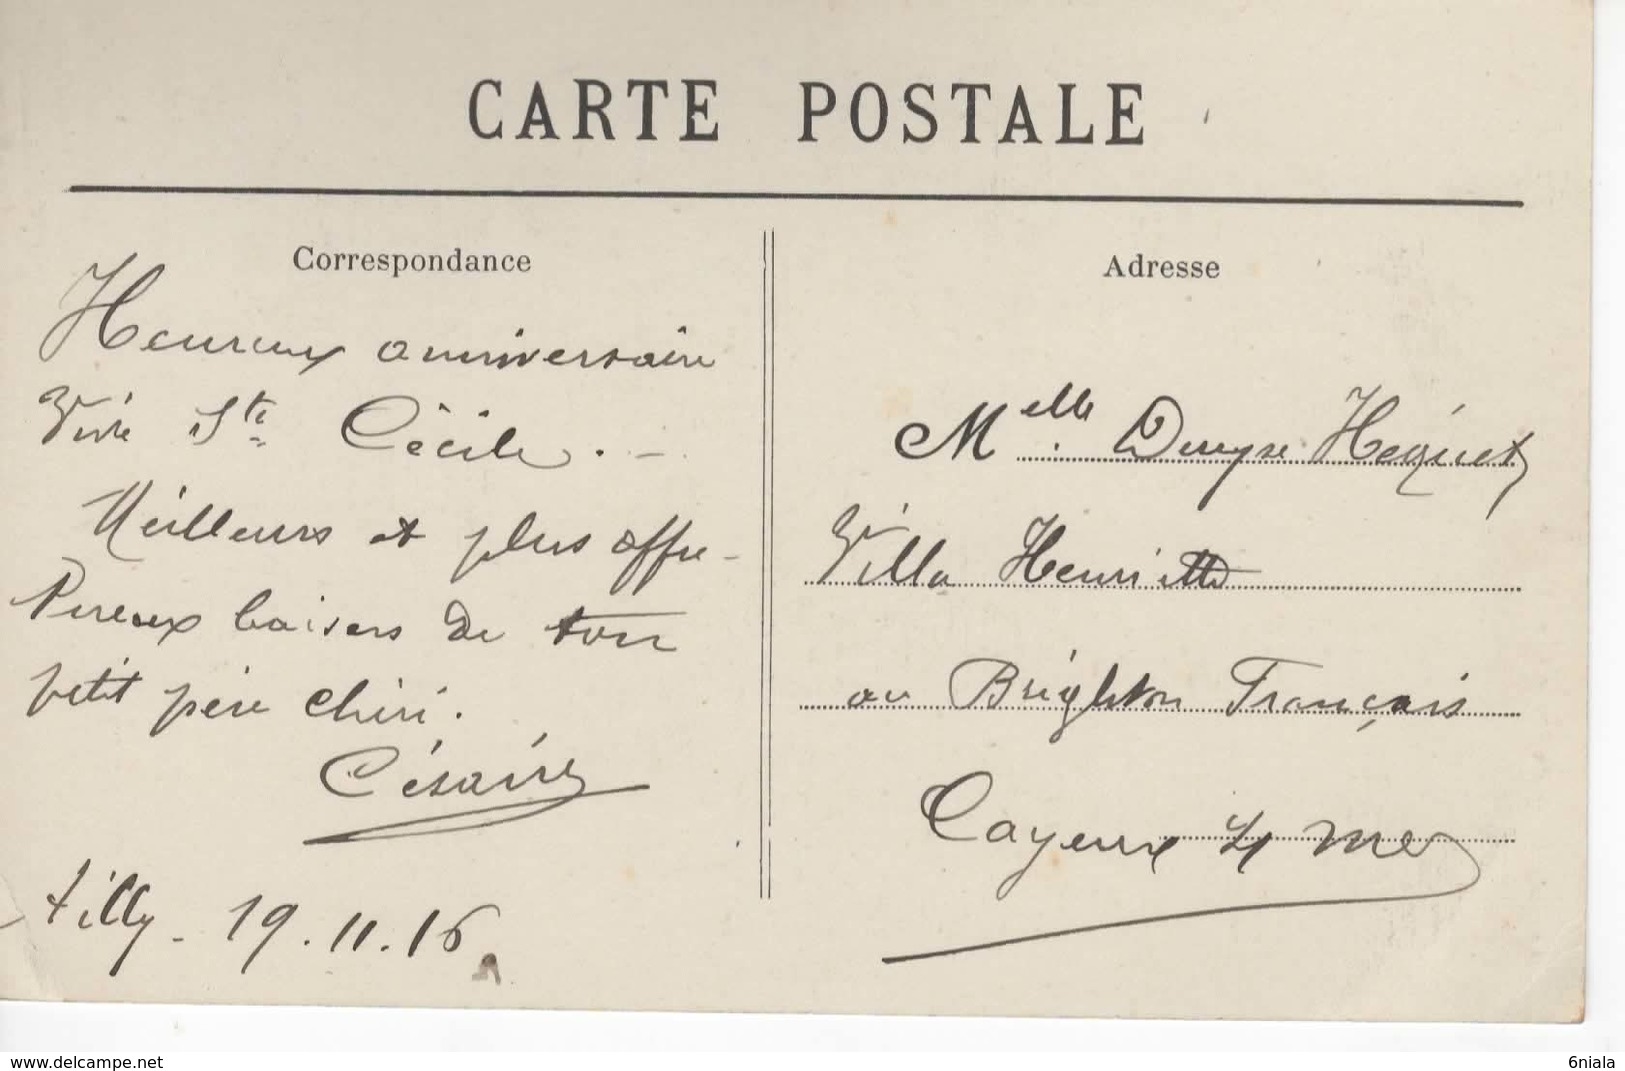 CARTE POSTALE
Correspondance
Heureux anniversaire
Vive Ste Cécile.
Meilleurs et plus affec-
tueux baisers de ton
petit père chéri.
Césaire
Tilly - 19.11.16
Adresse
Melle Denyse Héquet
Villa Henriette
au Brighton Français
Cayeux s/ mer
www.delcampe.net
6niala